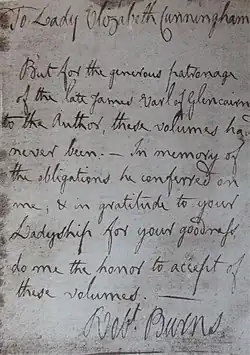 To Lady Elizabeth Cunningham
But for the generous patronage
of the late James Earl of Glencairn
to the Author, these volumes had
never been. — In memory of
the obligations he conferred on
me, & in gratitude to your
Ladyship for your goodness,
do me the honor to accept of
these volumes. —
Robt. Burns